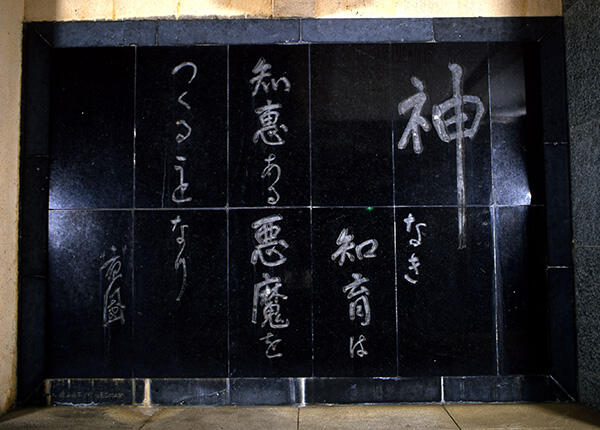 神なき
知育は
知惠ある悪魔を
つくることなり